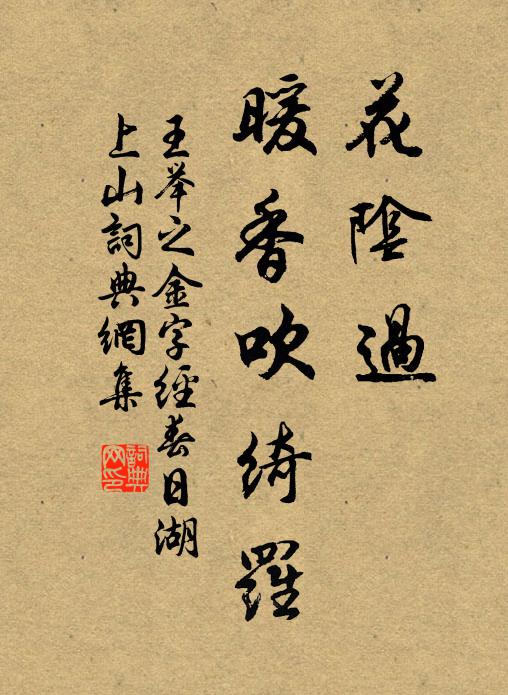 花陰過
暖香吹綺羅
王举之金字經春日湖
上山詞典網集
詞典网印